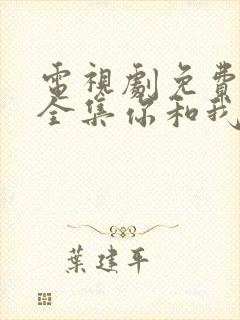 電視劇免費
全集你和我
葉建平